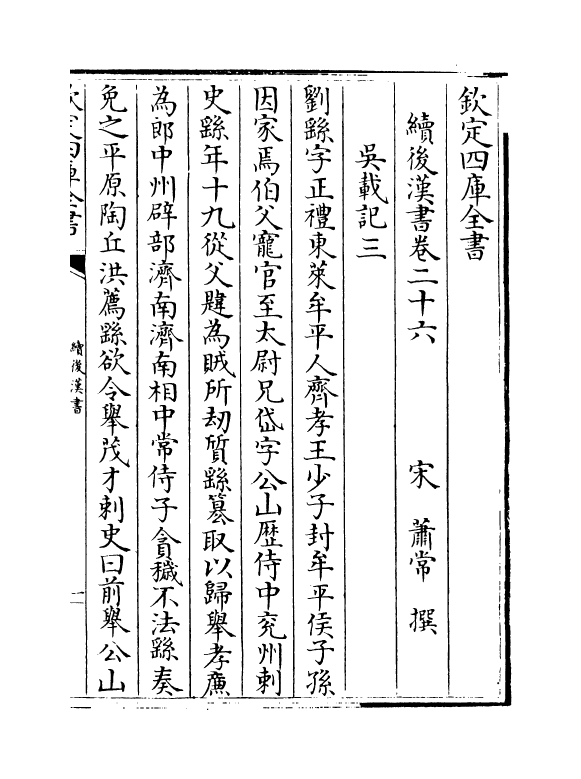 欽定四庫全書
續後漢書卷二十六 宋 蕭常 撰
吳載記三
劉繇字正禮東萊牟平人齊孝王少子封牟平侯子孫
因家焉伯父寵官至太尉兄岱字公山歷侍中兖州刺
史繇年十九從父韙為賊所刧質繇簒取以歸舉孝廉
為郎中州辟部濟南濟南相中常侍子貪穢不法繇奏
免之平原陶丘洪薦繇欲令舉茂才刺史曰前舉公山
欽定四庫全書
續後漢書
一